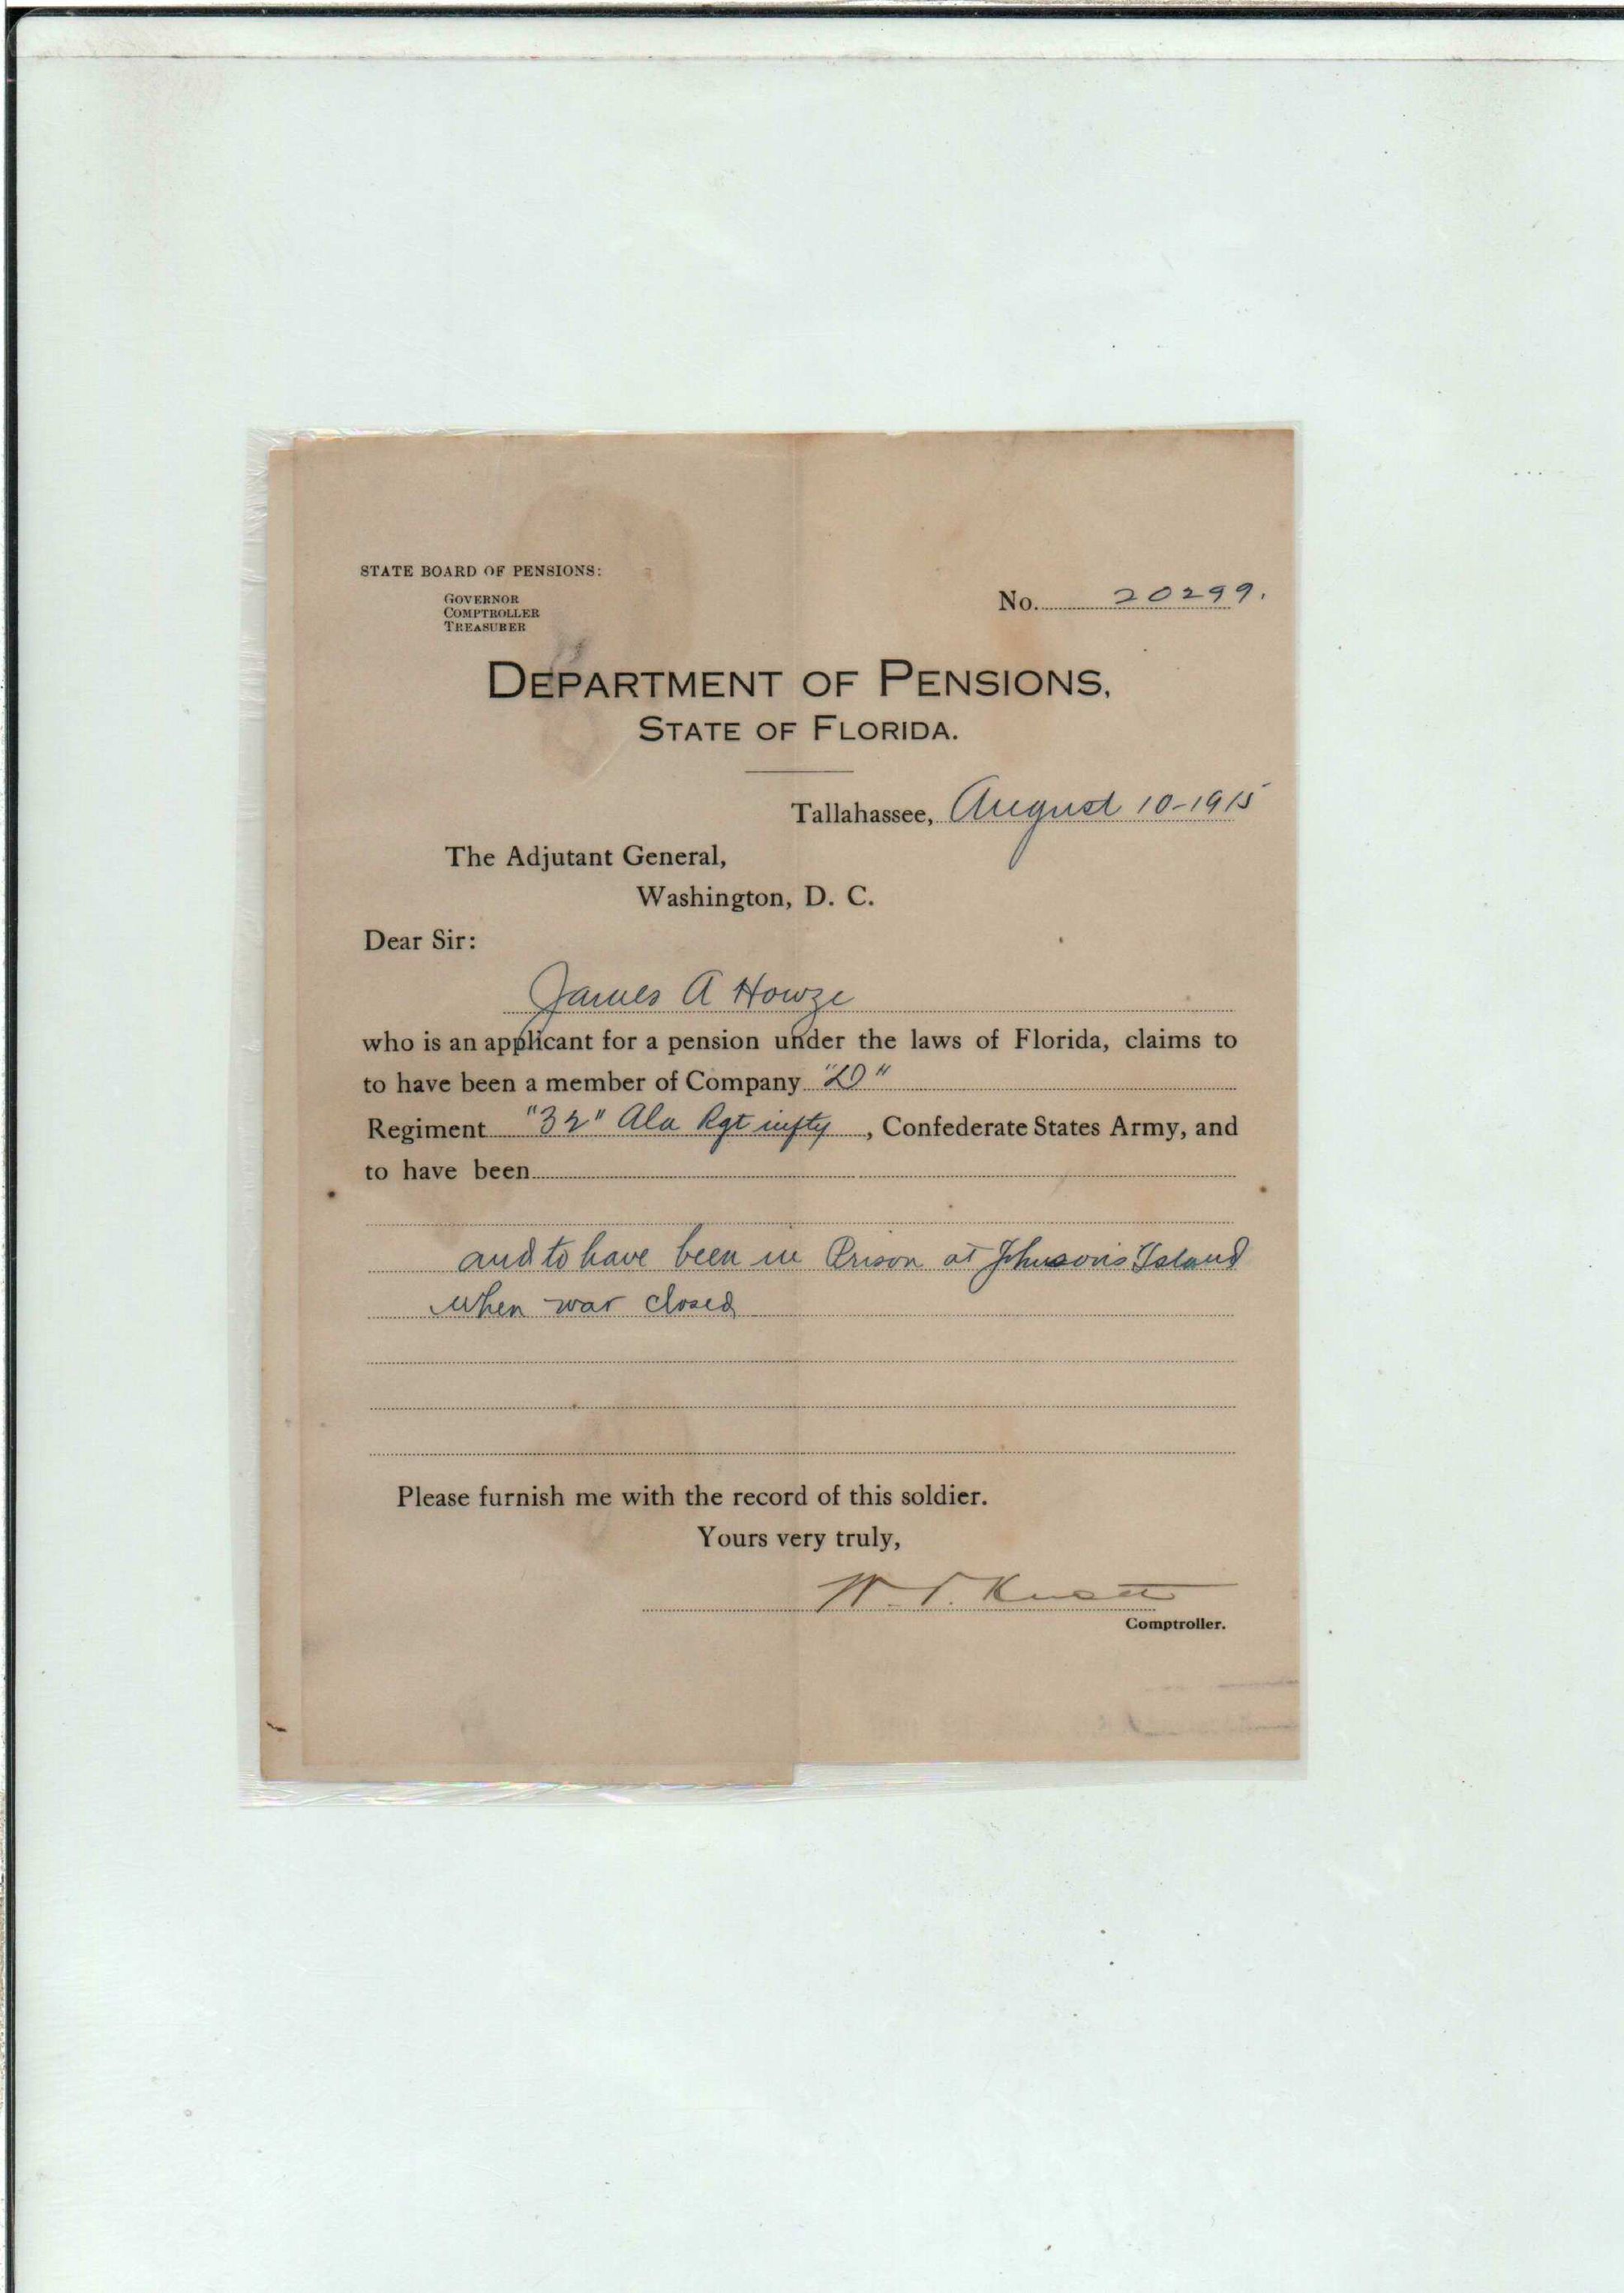 STATE BOARD OF PENSIONS:
GOVERNOR
COMPTROLLER
TREASURER
No. 20299.
DEPARTMENT OF PENSIONS,
STATE OF FLORIDA.
Tallahassee, August 10-1915
The Adjutant General,
Washington, D. C.
Dear Sir:
James A Howze
who is an applicant for a pension under the laws of Florida, claims to
to have been a member of Company "D"
Regiment "32" Ala Rgt infty, Confederate States Army, and
to have been
and to have been in Prison at Johnson's Island
when war closed
Please furnish me with the record of this soldier.
Yours very truly,
W. V. Knott
Comptroller.